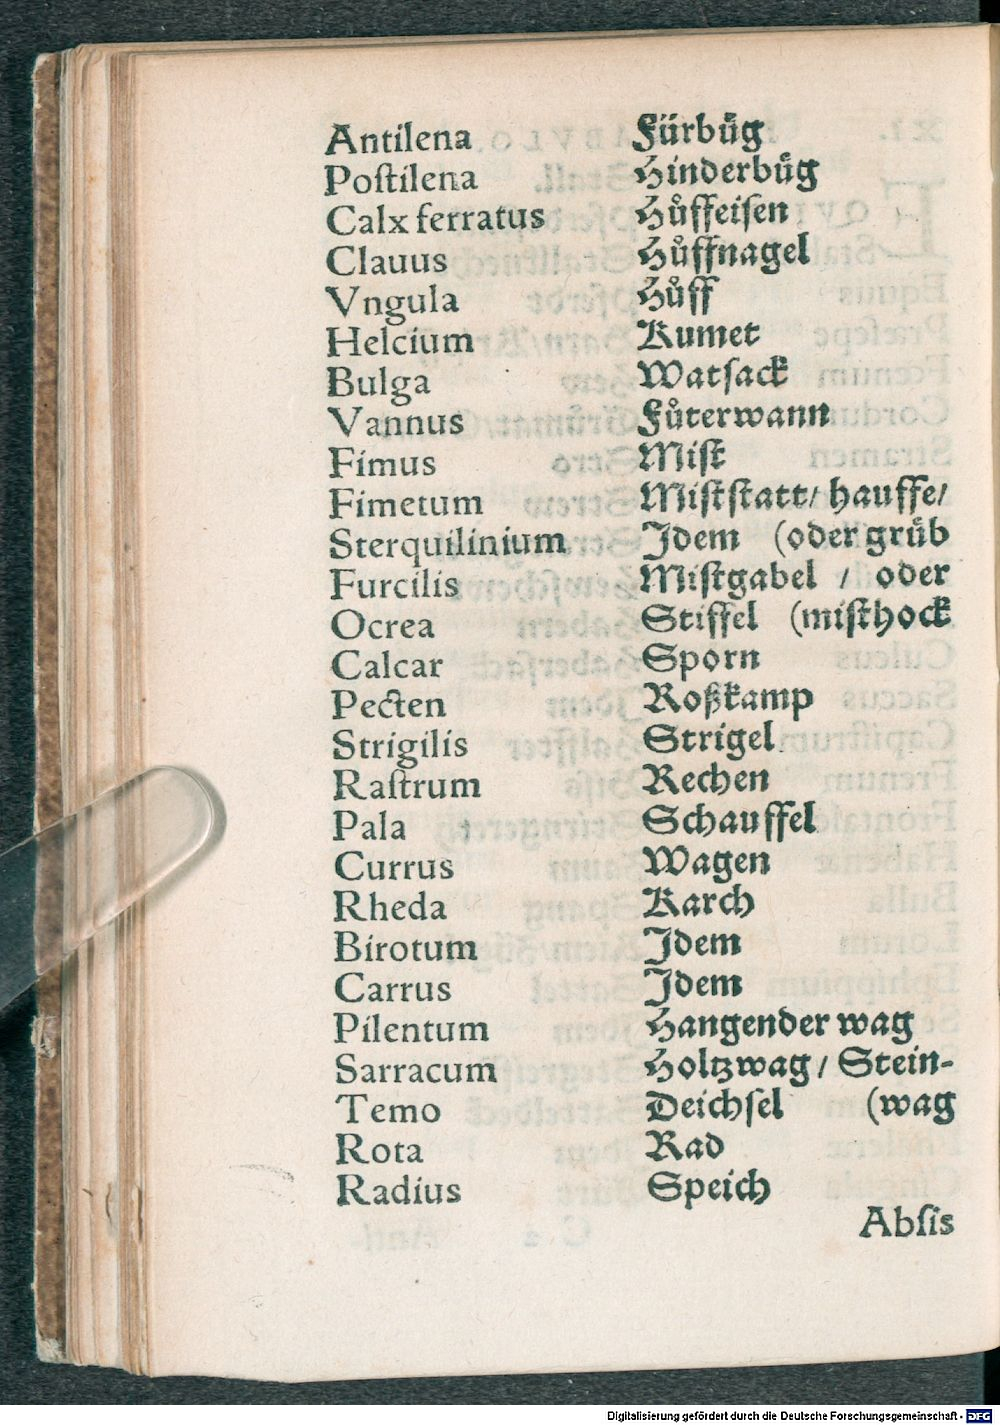 Antilena Fürbůg
Poſtilena Hinderbůg
Calx ferratus Hůffeiſen
Clauus Hůffnagel
Vngula Hůff
Helcium Kumet
Bulga Watſack
Vannus Fůterwann
Fimus Miſt
Fimetum Miſtſtatt/ hauffe/
Sterquilinium Idem (oder grůb
Furcilis Miſtgabel / oder
Ocrea Stiffel (miſthock
Calcar Sporn
Pecten Roßkamp
Strigilis Strigel
Raſtrum Rechen
Pala Schauffel
Currus Wagen
Rheda Karch
Birotum Idem
Carrus Idem
Pilentum Hangender wag
Sarracum Holtzwag/ Stein-
Temo Deichſel (wag
Rota Rad
Radius Speich
Abſis
Digitalisierung gefördert durch die Deutsche Forschungsgemeinschaft - DFG